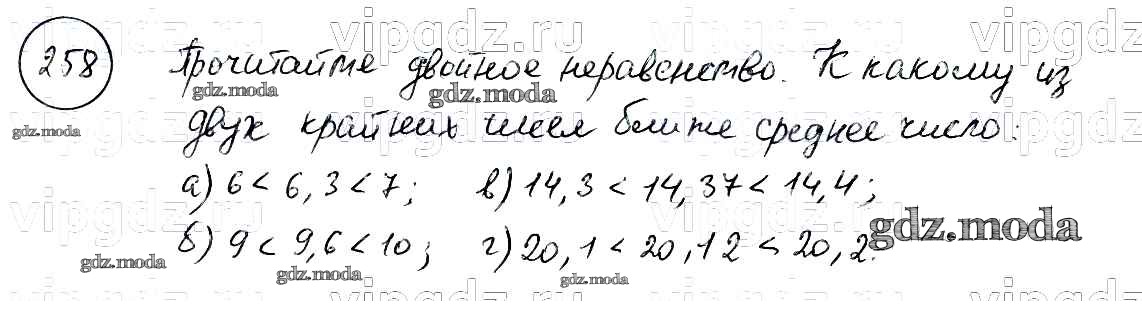 vipgdz.ru vipgdz.ru vipgdz.ru vipgdz
258 Прочитайте двойное неравенство. К какому из
gdz.moda gdz.moda
двух крайних чисел ближе среднее число:
gdz.moda
а) 6 < 6,3 < 7; в) 14,3 < 14,37 < 14,4;
vipgdz.ru vipgdz.ru vipgdz.ru vipgdz
б) 9 < 9,6 < 10; г) 20,1 < 20,12 < 20,2.
gdz.moda
gdz.moda gdz.moda gdz.moda
vipgdz.ru vipgdz.ru vipgdz.ru vipgdz